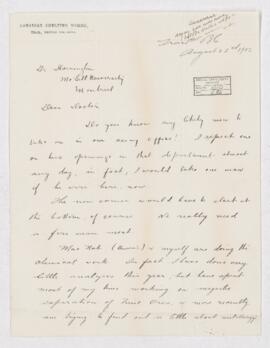 CANADIAN SMELTING WORKS,
TRAIL, BRITISH COLUMBIA.
Trail BC
August 22nd 1902
Dr Harrington
McGill University
Montreal
Dear Doctor
Do you know any likely men to
take on in our assay office? I expect one
or two openings in that department almost
any day, in fact, I would take one now
if he were here, now.
The new comer would have to start at
the bottom, of course. We really need
a fire man most.
Miss Nat & myself are doing the
chemical work. In fact I have done very
little analysis this year, but have spent
most of my time working on magnetic
separation of Zinc Ores, & now recently
am trying to find out a little about